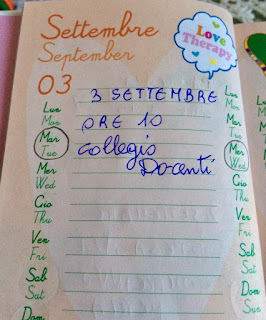 Settembre
September
Love
Therapy
03
3 SETTEMBRE
ORE 10
Collegio
Docenti
Lun
Mon
Mar
Tue
Mer
Wed
Gio
Thu
Ven
Fri
Sab
Sat
Dom
Lun
Mon
Mar
Tue
Mer
Wed
Gio
Thu
Ven
Fri
Sab
Sat
Dom
Sun